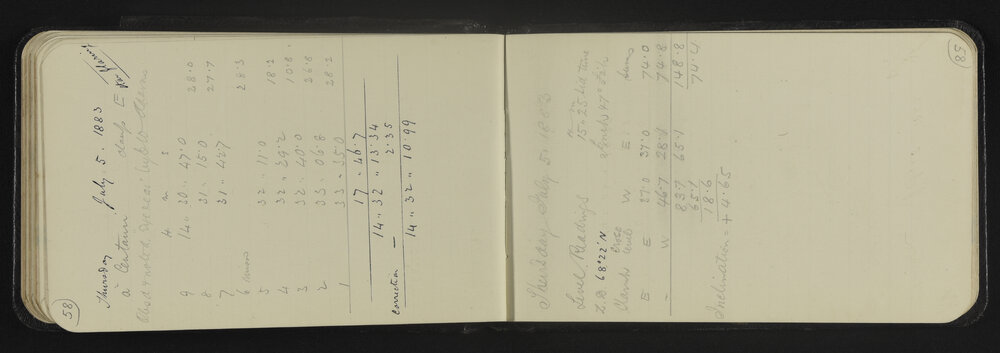 58
Thursday July. 5. 1883
α Centauri clamp E
H m s
9 14 .. 30 .. 47.0 28.0
8 31 .. 15.0 27.7
7 31 ..
6 28.3
5 32 .. 11.0 18.2
4 32 .. 10.8
3 32 .. 40.0 26.8
2 33 .. 06.8 28.2
1 33 .. 35.0
17 .. 46.7
14 .. 32 .. 13.34
correction — 2.35
14 .. 32 .. 10.99
85
Thursday July 5. 1883
Level Readings 15h 25m Sid time
Z.D 68°22' N
Clamps W E Sums
E 37.0 37.0 74.0
W 46.7 28.1 74.8
83.7 65.1 148.8
65.1 74.4
18.6
Inclination = + 4.65